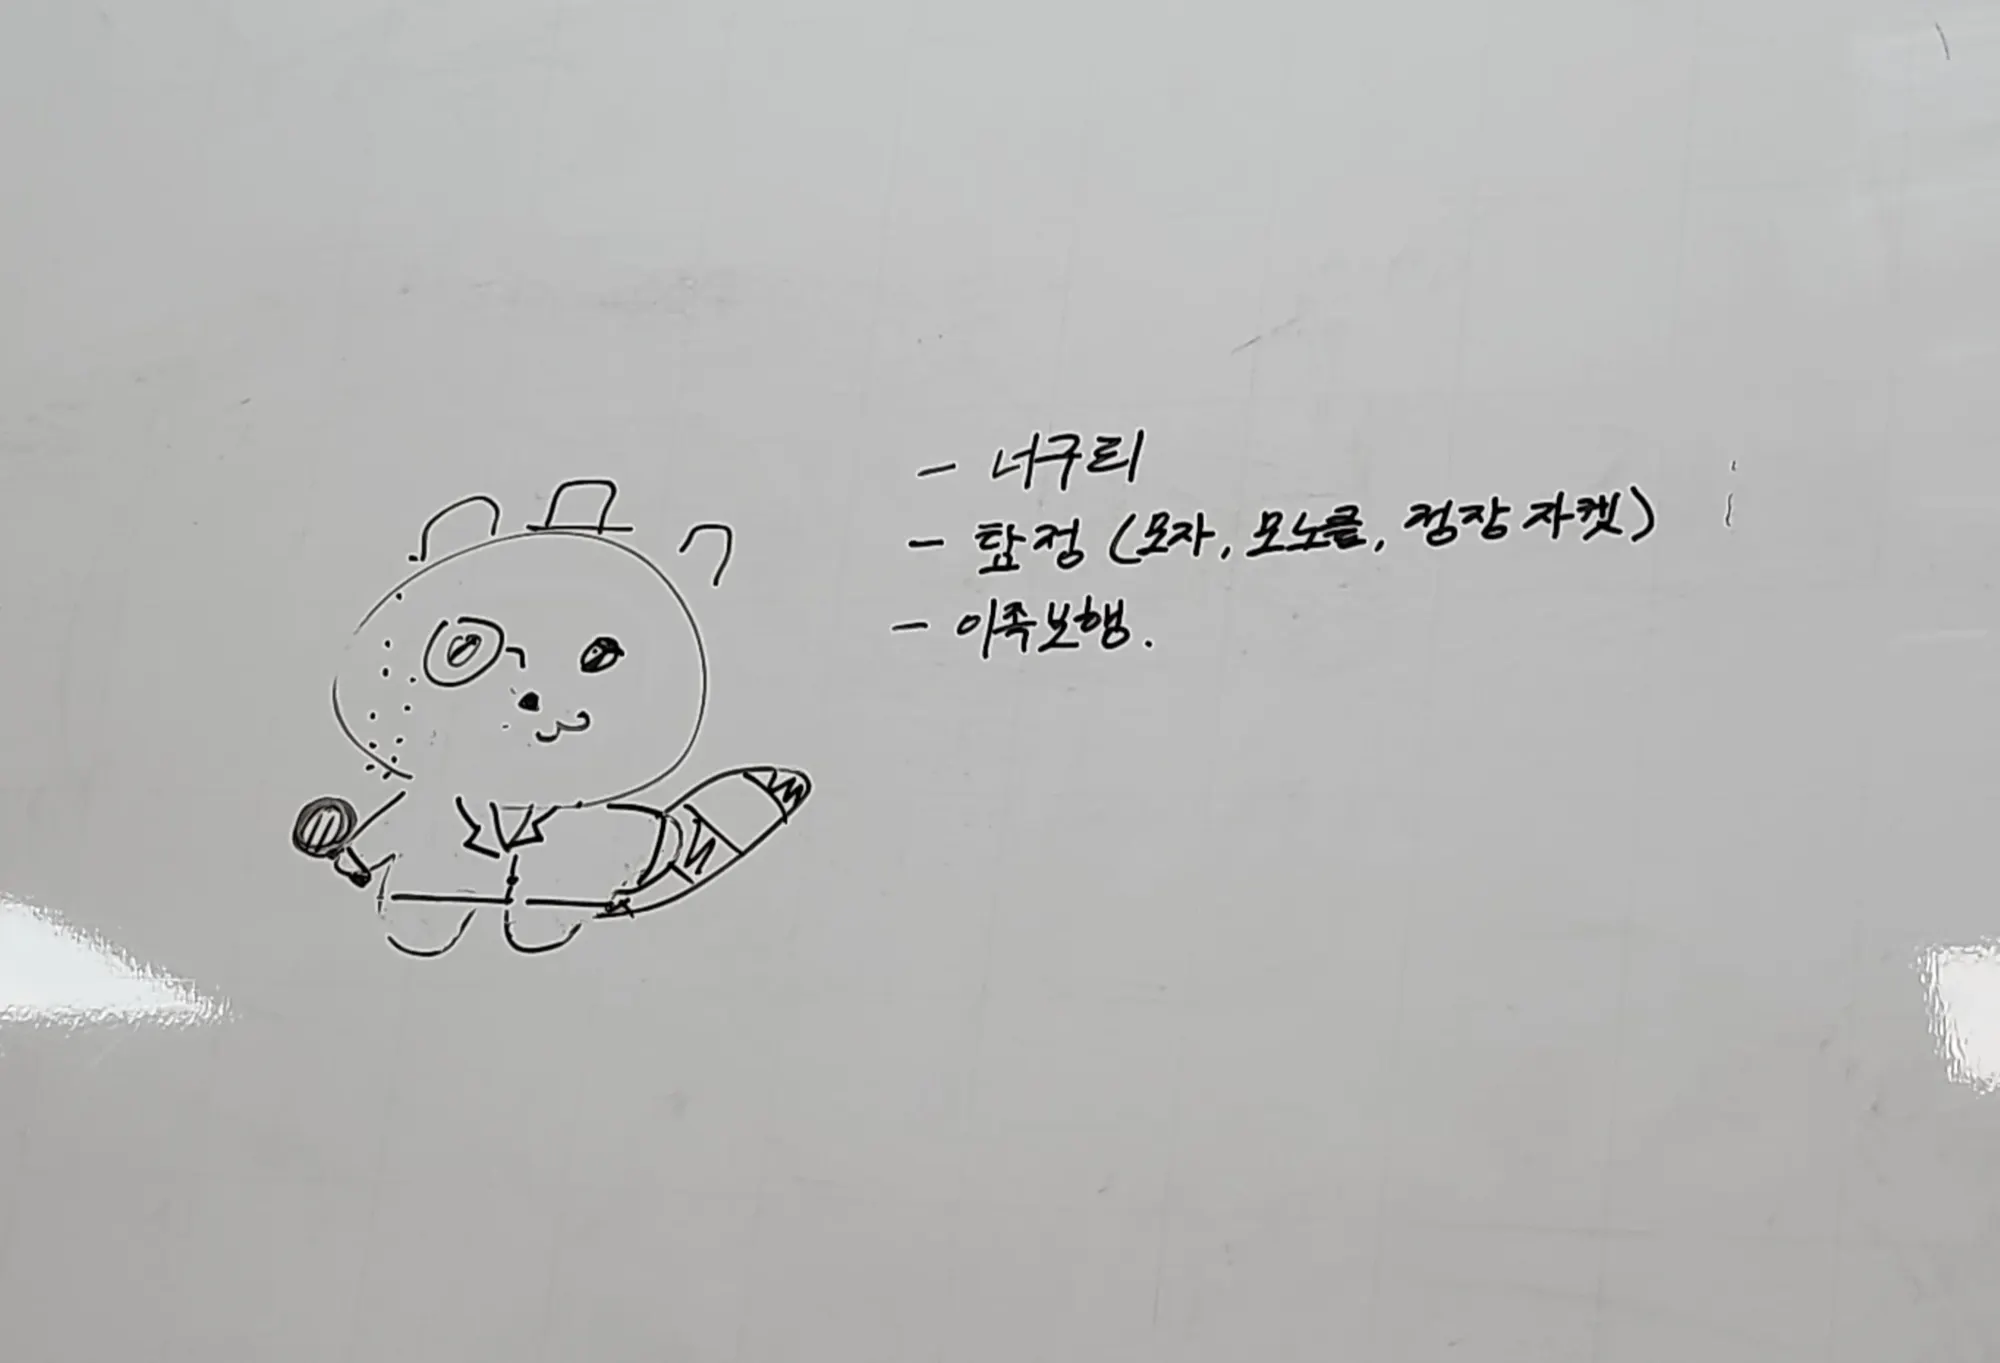 - 너구리
- 탐정 (모자, 모노클, 정장 자켓)
- 이족보행.